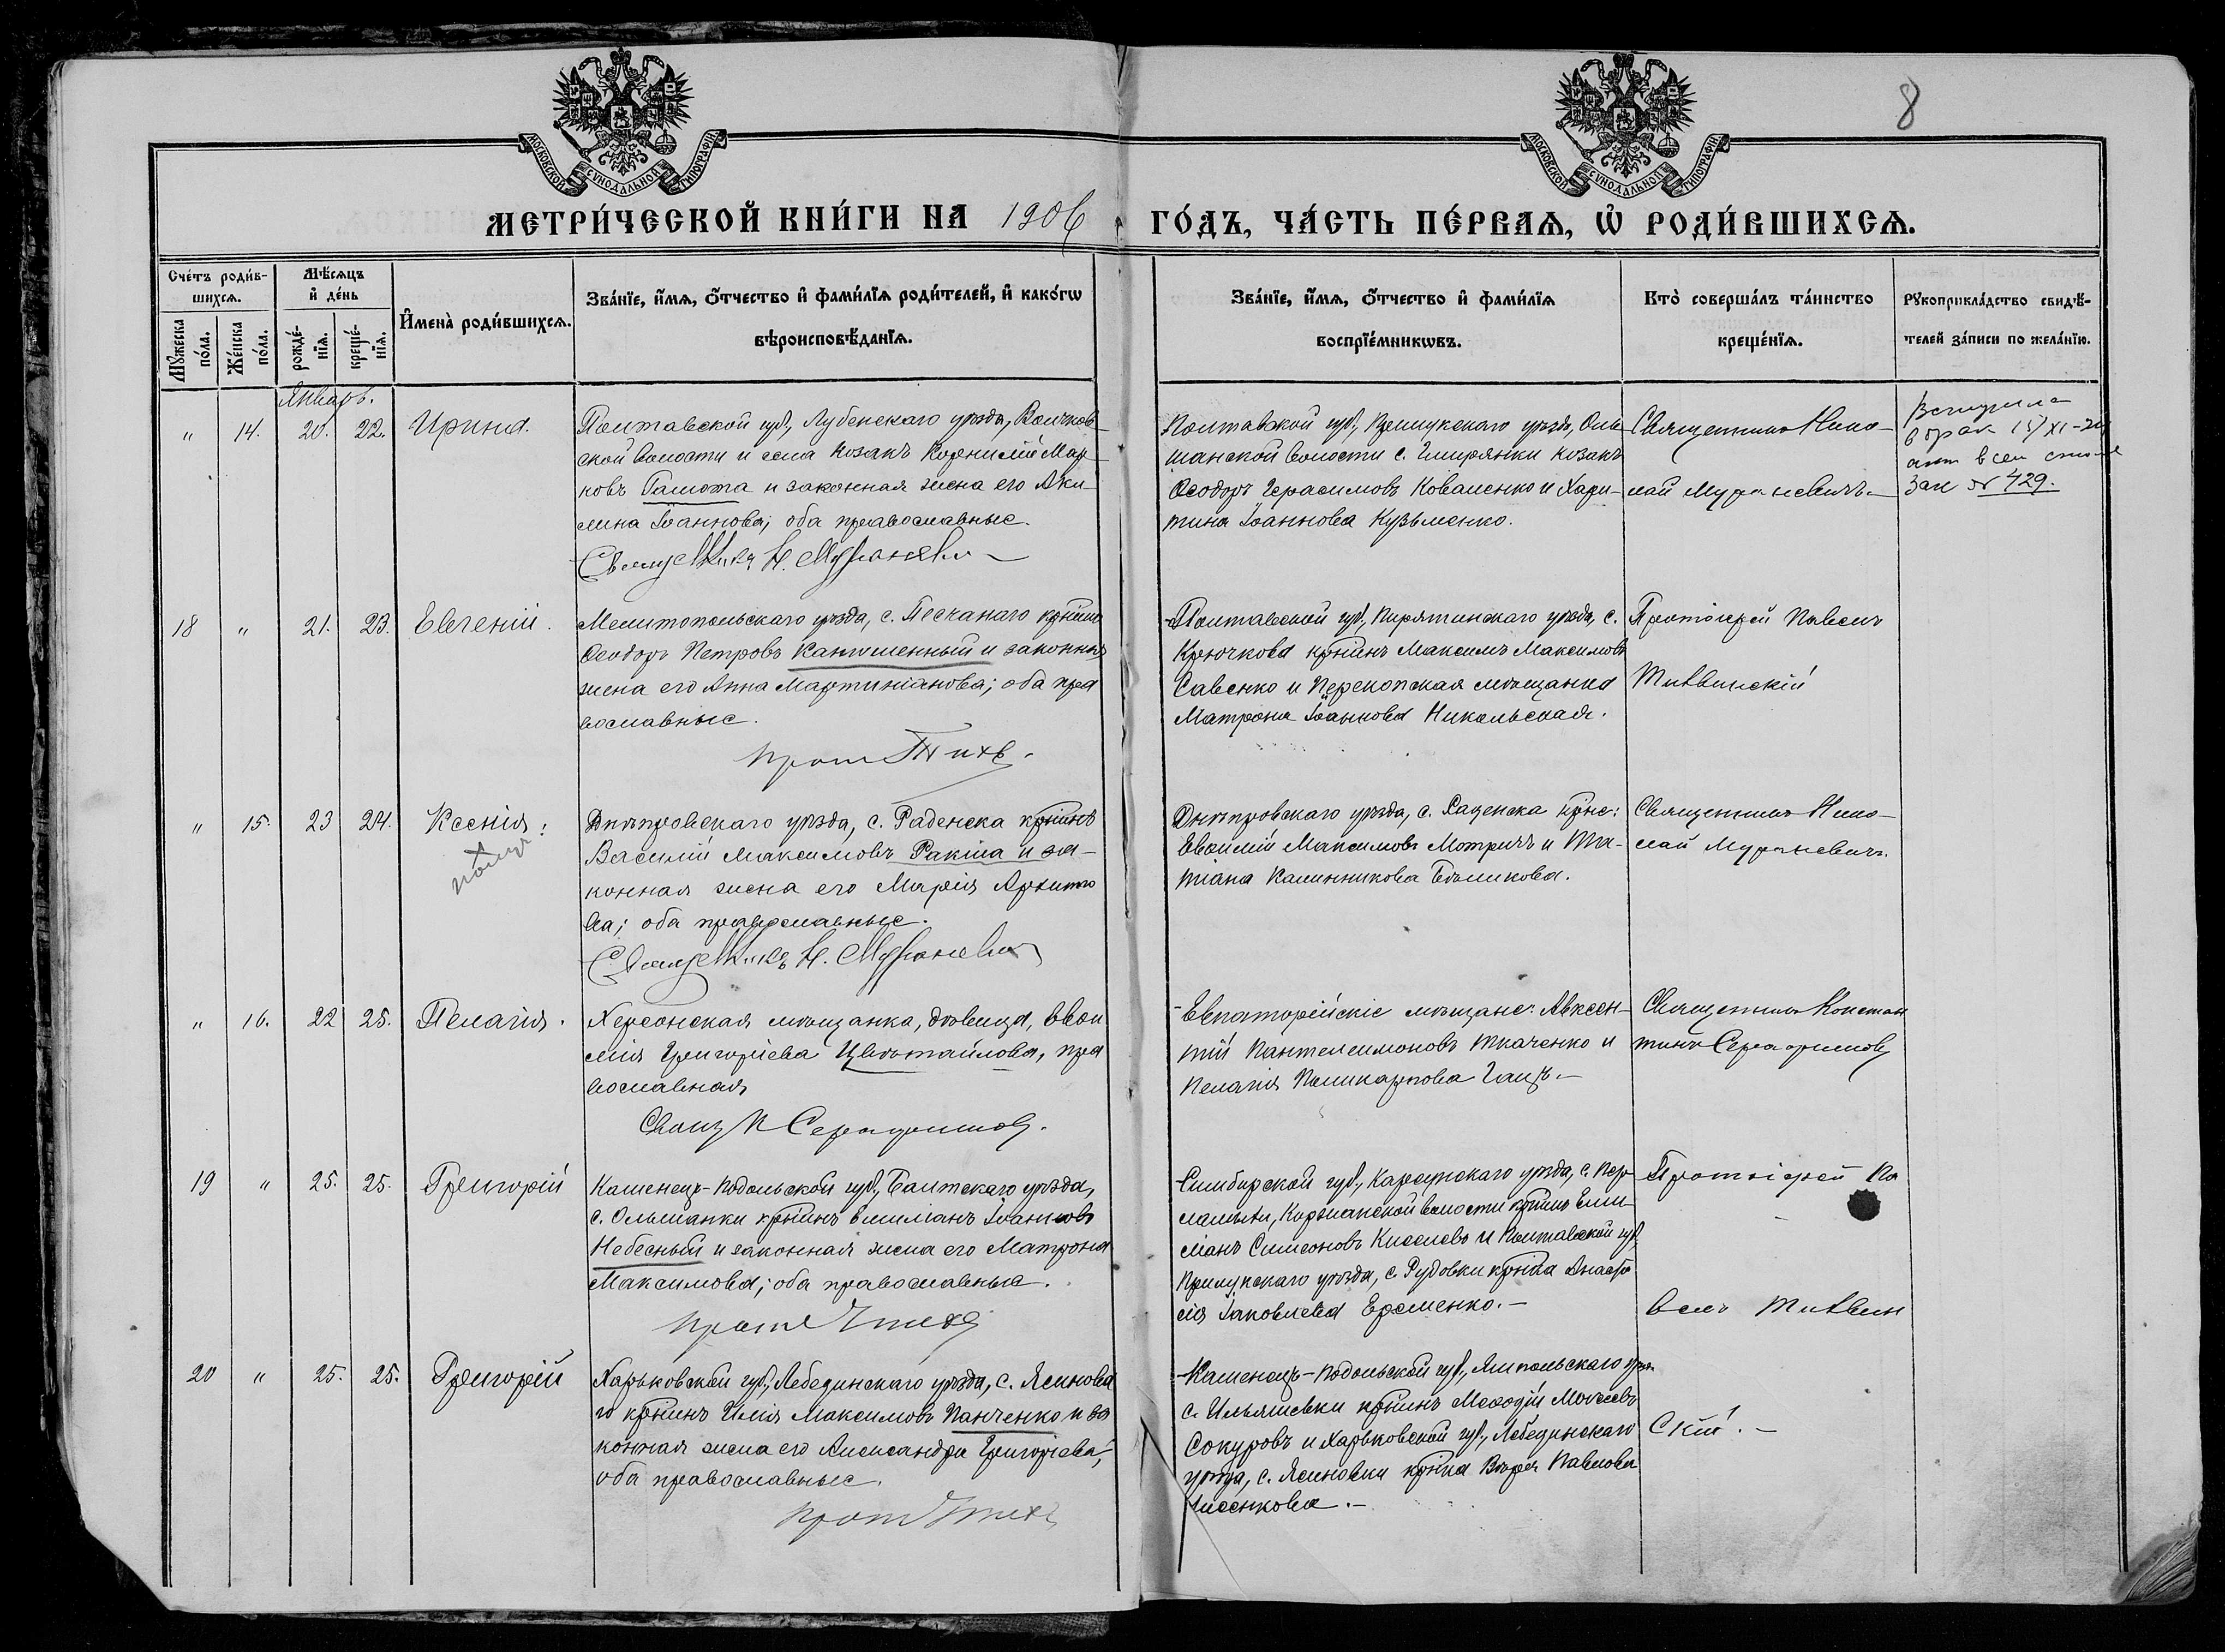 8
МОСКОВСКОЙ СѴНОДАЛЬНОЙ ТИПОГРАФІИ
МОСКОВСКОЙ СѴНОДАЛЬНОЙ ТИПОГРАФІИ
МЕТРИ́ЧЕСКОЙ КНИ́ГИ НА 1906 ГО́ДЪ, ЧА́СТЬ ПЕ́РВАѦ, Ѡ҆ РОДИ́ВШИХСѦ.
Сче́тъ роди́в-
шихсѧ.
Мꙋ́жеска по́ла.
Же́нска по́ла.
Мѣ́сѧцъ
и҆ де́нь
рожде́-нїѧ.
креще́-нїѧ.
И҆мена̀ роди́вшихсѧ.
Зва́нїе, и҆́мѧ, ѻ҆́тчество и҆ фами́лїѧ роди́телей, и҆ како́гѡ
вѣроисповѣ́данїѧ.
Зва́нїе, и҆́мѧ, ѻ҆́тчество и҆ фами́лїѧ
воспрїе́мникѡвъ.
Кто̀ соверша́лъ та́инство
креще́нїѧ.
Рꙋкоприкла́дство свидѣ́-
телей за́писи по жела́нїю.
Январь.
" 14. 20. 22. Ирина.
Полтавской губ., Лубенскаго уѣзда, Волчков-
ской волости и села козакъ Корнилій Мар-
ковъ Гамота и законная жена его Аки-
лина Іоаннова; оба православные.
Священникъ Н. Мураневич
Полтавской губ., уѣзда, Оль-
шанской волости с. козакъ
Ѳеодоръ Герасимовъ Коваленко и Хари-
тина Іоаннова Кузьменко.
Священникъ Нико-
лай Мураневичъ.
Вступила
в брак 15/XI-24
акт в сем
Зак № 429.
18 " 21. 23. Евгеній.
Мелитопольскаго уѣзда, с. Песчанаго крѣнинъ
Ѳеодоръ Петровъ и законная
жена его Анна Мартиніанова; оба пра
вославные.
прот Титв.
Полтавской губ., Пирятинскаго уѣзда, с.
Крючкова крѣнинъ Максимъ Максимовъ
Савенко и Перекопская мѣщанка
Матрона Іоаннова Никольская.
Протоіерей Павелъ
Титвинскій
" 15. 23 24. Ксенія.
Днѣпровскаго уѣзда, с. Раденска крѣнинъ
Василій Максимовъ Ракша и за-
конная жена его Марія Архипо
ва; оба православные.
Священникъ Н. Мураневич
Днѣпровскаго уѣзда, с. Раденска крѣне:
Евѳимій Максимовъ Мотричъ и Та-
тіана Калинникова Бѣликова.
Священникъ Нико-
лай Мураневичъ.
" 16. 22 25. Пелагія.
Херсонская мѣщанка, дѣвица, Евѳи
мія Григоріева Цвѣтайлова, пра
вославная
Свящ К Серафимов.
Евпаторійскіе мѣщане: Авксен-
тій Пантелеимоновъ Ткаченко и
Пелагія Поликарпова Ганжъ.
Священникъ Констан
тинъ Серафимовъ
19 " 25. 25. Григорій
Каменецъ-Подольской губ., Балтскаго уѣзда,
с. Ольшанки крѣнинъ Емиліанъ Іоанновъ
Небесный и законная жена его Матрона
Максимова; оба православные.
прот
Симбирской губ., Карсунскаго уѣзда, с.
волости крѣнинъ Еми-
ліанъ Симеоновъ Киселевъ и Полтавской губ.
Прилукскаго уѣзда, с. Рудовки крѣнка Анаста
сія Іаковлева Еременко.
Протоіерей Па
велъ Титвин
скій.
20 " 25. 25. Григорій
Харьковской губ., Лебединскаго уѣзда, с. Ясинова
го крѣнинъ Илія Максимовъ Панченко и за
конная жена его Александра Григоріева;
оба православные.
прот
Каменецъ-Подольской губ., Ямпольскаго уѣз.
с. Ильяшевки крѣнинъ Меѳодій Моѵсеевъ
Сокуровъ и Харьковской губ., Лебединскаго
уѣзда, с. Ясиновки крѣнка Вѣра Павлова
Лисенкова.